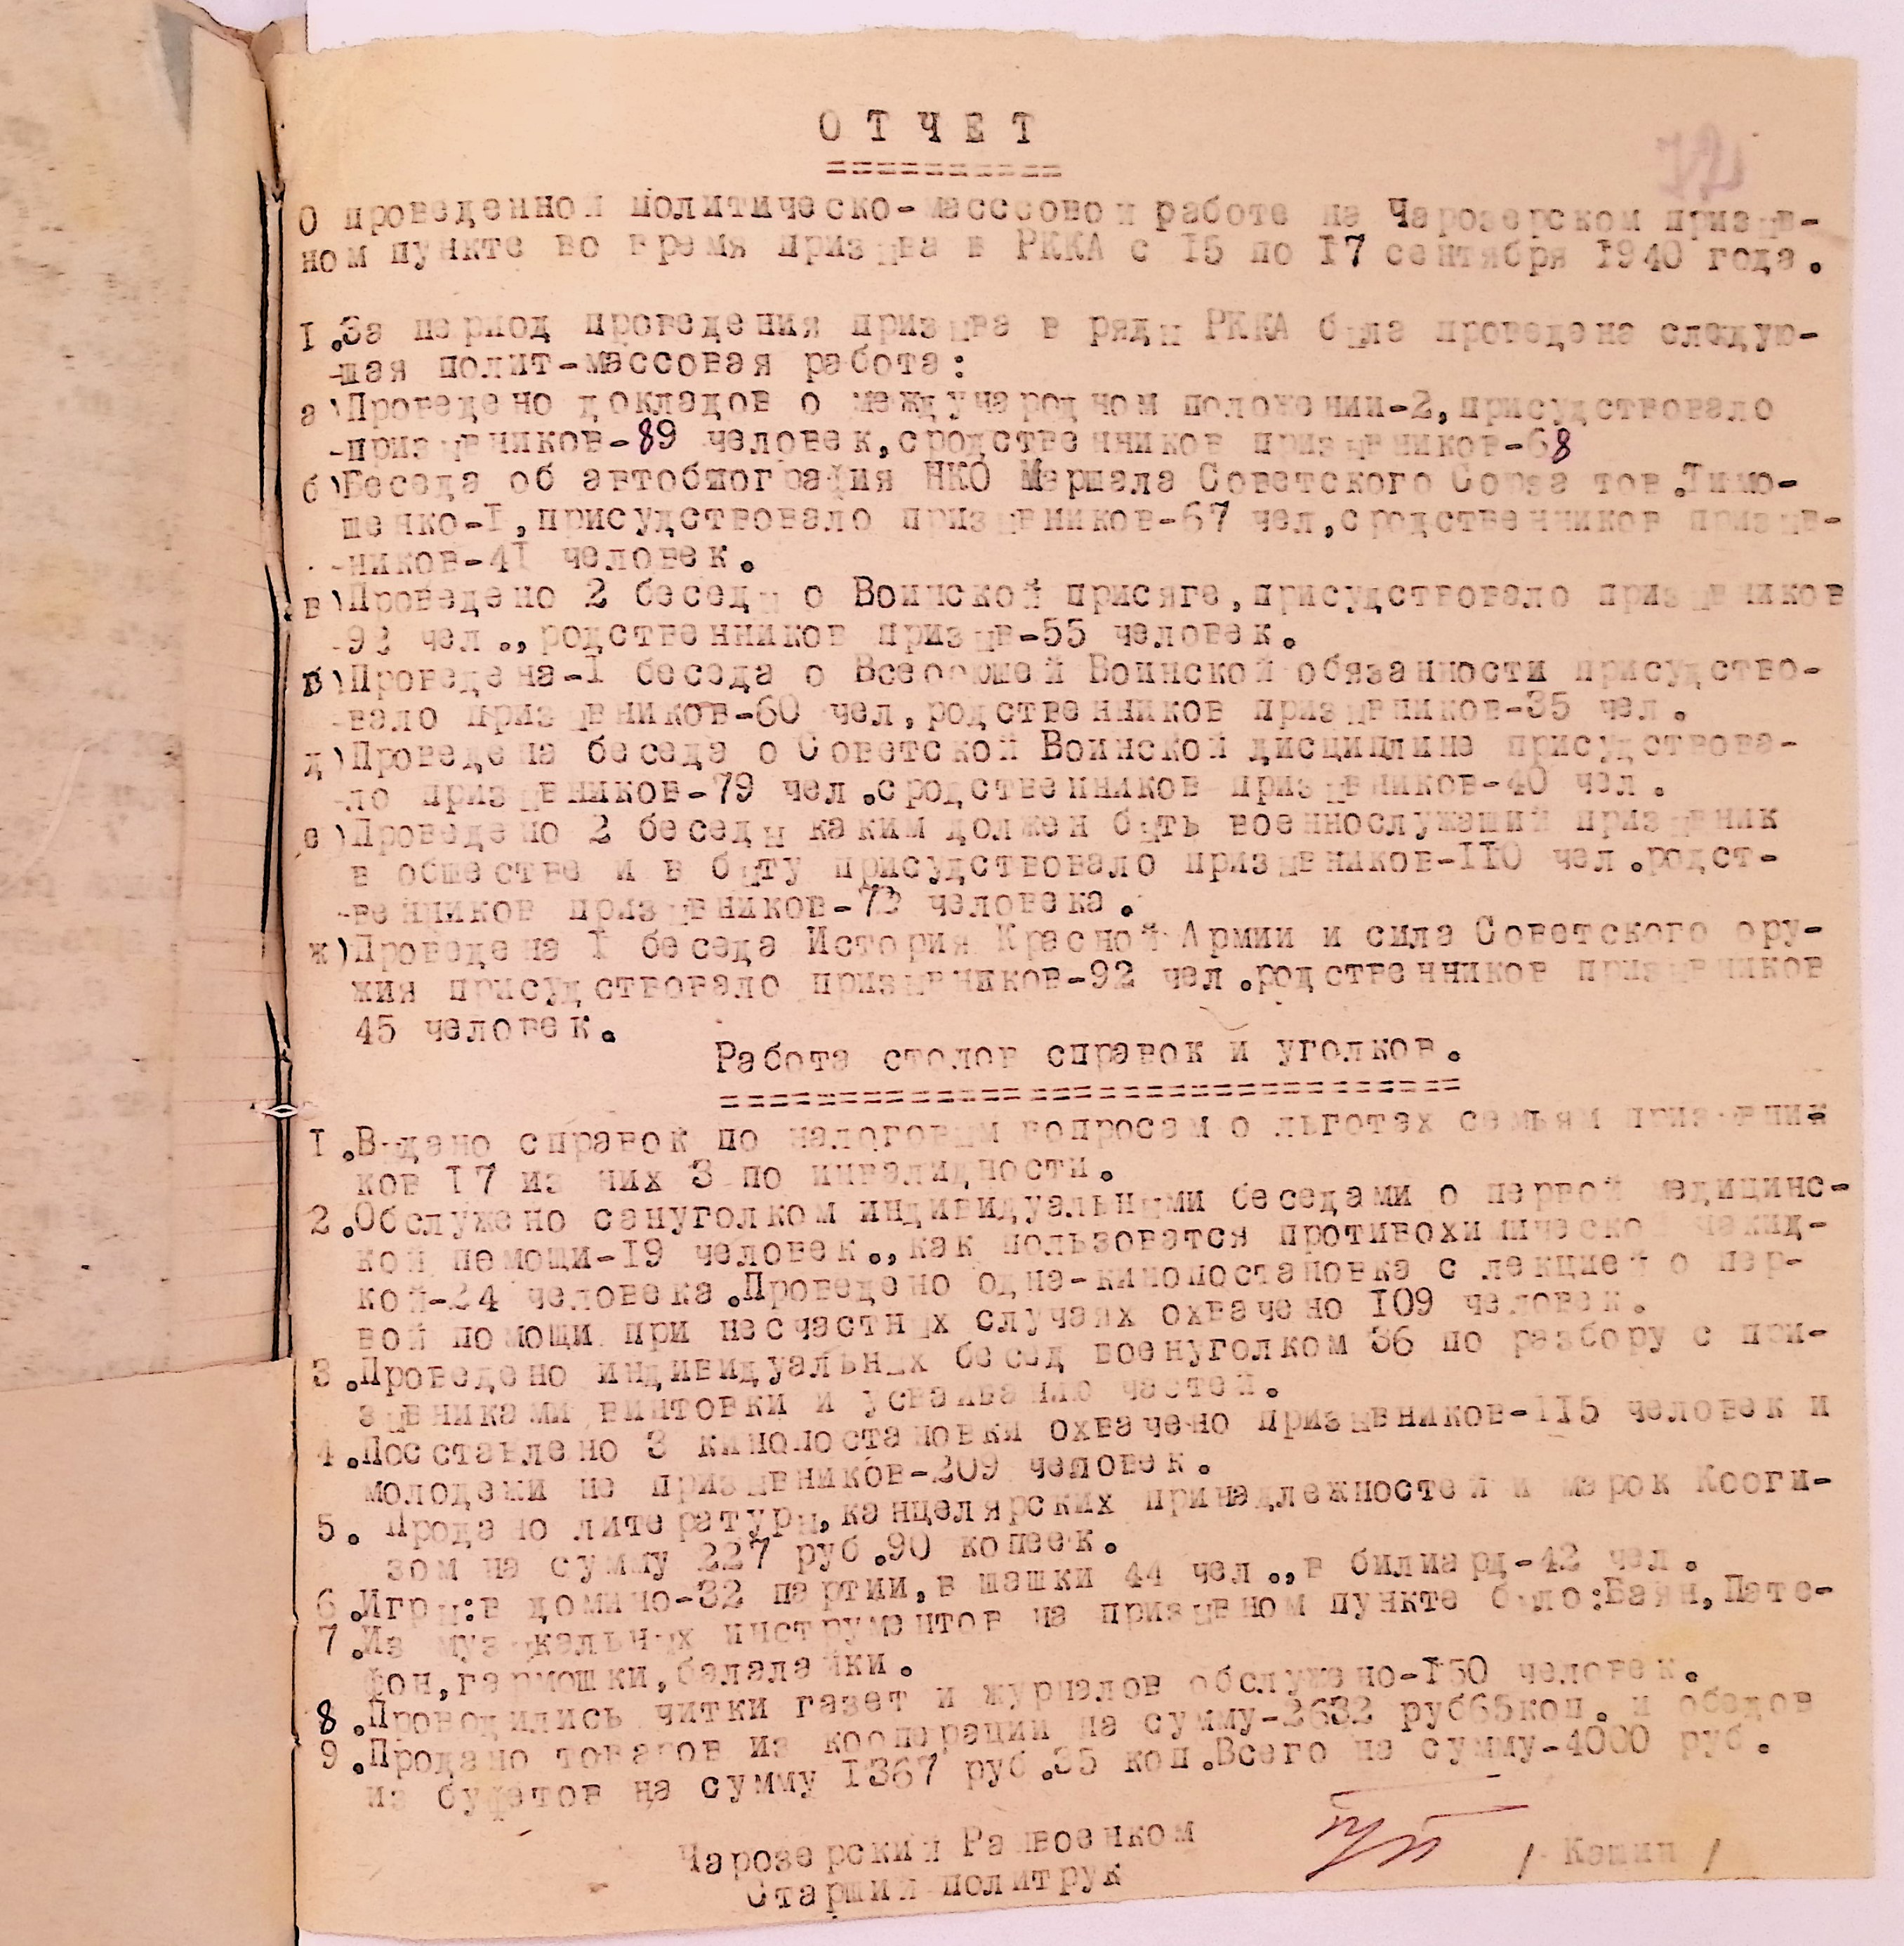 72
О Т Ч Е Т
==========
О проведенной политическо-масссовой работе на Чарозерском призыв-
ном пункте во время призыва в РККА с I5 по I7 сентября I940 года.
I.За период проведения призыва в ряды РККА была проведена следую-
-шая полит-массовая работа:
а)Проведено докладов о международном положении-2,присудствовало
-призывников-89 человек,сродственников призывников-68
б)Беседа об автобиография НКО Маршала Советского Союза тов.Тимо-
шенко-I,присудствовало призывников-67 чел,сродственников призыв-
-ников-4I человек.
в)Проведено 2 беседы о Воинской присяге,присудствовало призывников
-92 чел.,родственников призыв-55 человек.
Проведена-I беседа о Воинской обязанности присудство-
-вало призывников-60 чел,родственников призывников-35 чел.
д)Проведена беседа о Советской Воинской дисциплине присудствова-
-ло призывников-79 чел.сродственников призывников-40 чел.
е)Проведено 2 беседы каким должен быть военнослужаший призывник
в обшестве и в быту присудствовало призывников-II0 чел.родст-
-венников призывников-73 человека.
ж)Проведена I беседа История Красной Армии и сила Советского ору-
жия присудствовало призывников-92 чел.родственников призывников
45 человек.
Работа столов справок и уголков.
================================
I.Выдано справок по налоговым вопросам о льготах семьям призывни-
ков I7 из них 3 по инвалидности.
2.Обслужено сануголком индивидуальными беседами о первой медицинс-
кой помощи-I9 человек.,как пользоватся противохимической накид-
кой-24 человека.Проведено одна-кинопостановка с лекцией о пер-
вой помощи при несчастных случаях охвачено I09 человек.
3.Проведено индивидуальных бесед военуголком 36 по разбору с при-
зывниками винтовки и усваиванию частей.
4.Посставлено 3 кинопостановки охвачено призывников-II5 человек и
молодежи не призывников-209 человек.
5. Продано литературы,канцелярских принадлежностей и марок Кооги-
зом на сумму 227 руб.90 копеек.
6.Игры:в домино-32 партии,в шашки 44 чел.,в билиард-42 чел.
7.Из музыкальных инструментов на призывном пункте было:Баян,Пате-
фон,гармошки,балалайки.
8.Проводились читки газет и журналов обслужено-I50 человек.
9.Продано товаров из кооперации на сумму-2632 руб65коп. и обедов
из буфетов на сумму I367 руб.35 коп.Всего на сумму-4000 руб.
Чарозерский Райвоенком
Старший политрук / Кашин /